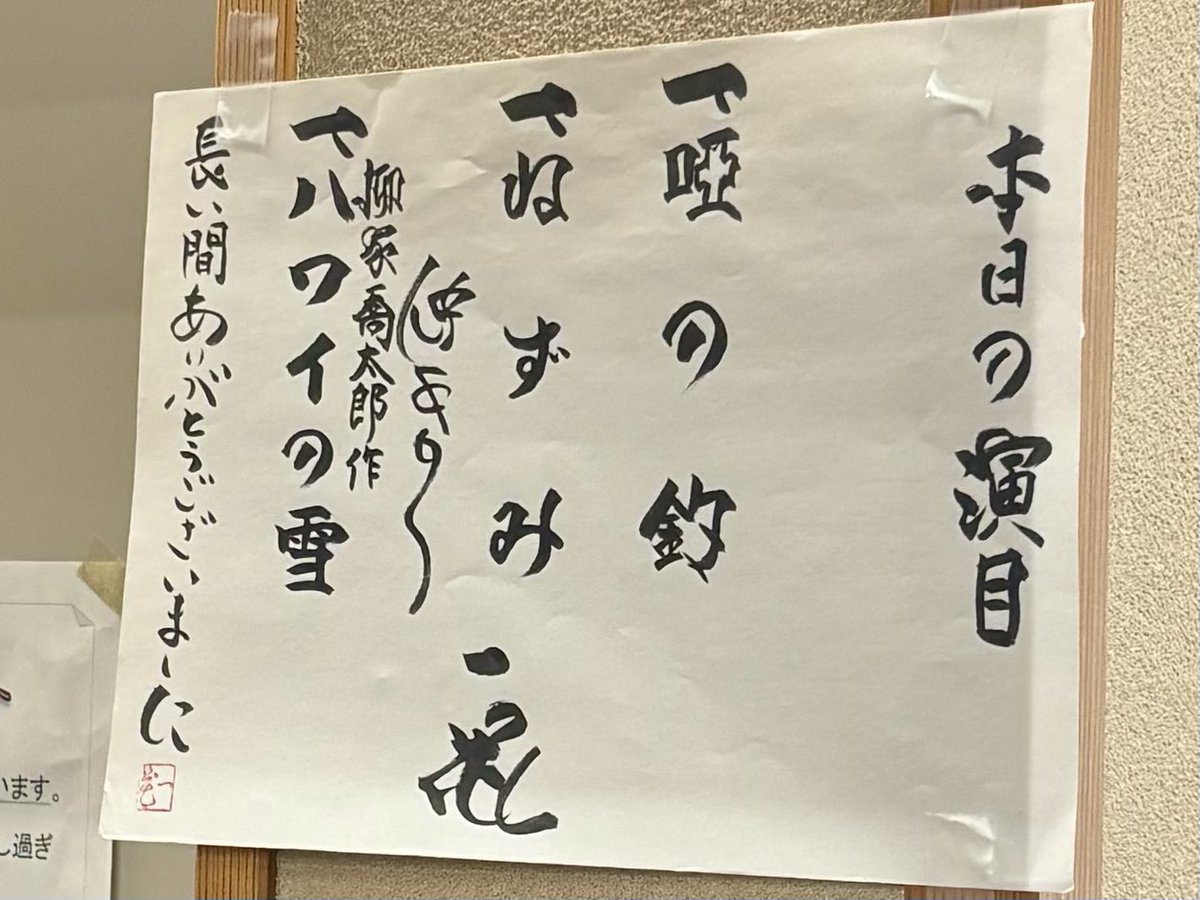 本日の演目
一、唖の釣
一、ねずみ
一花
柳家喬太郎作
一、ハワイの雪
長い間ありがとうございました
います。
し過ぎ